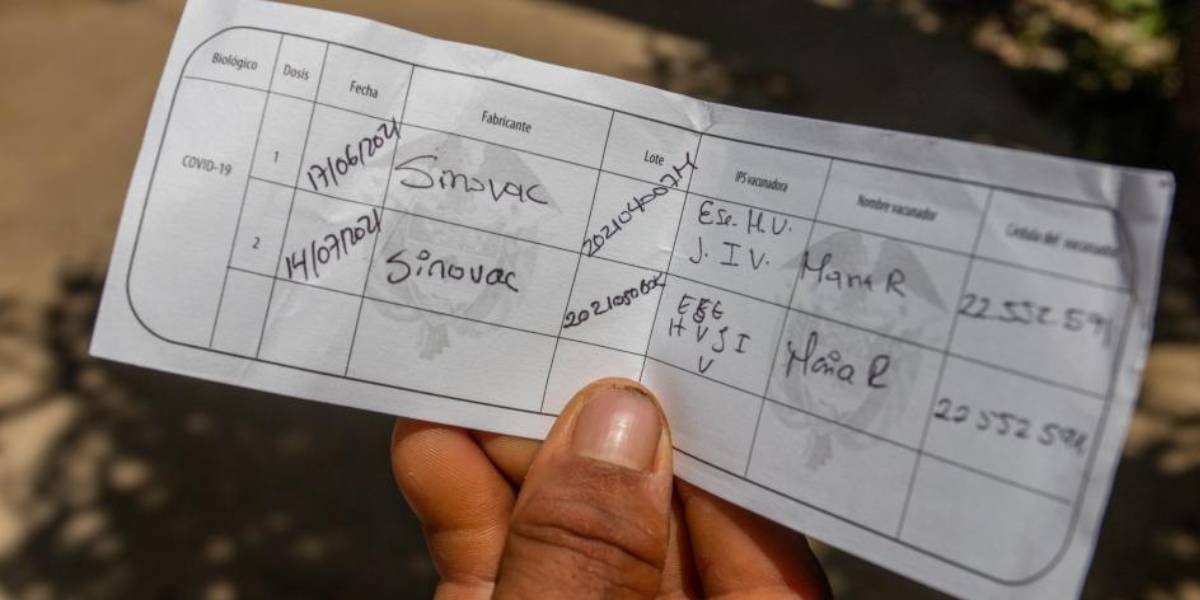 Biológico Dosis Fecha Fabricante Lote IPS vacunadora Nombre vacunador Cédula del vacunador
COVID-19
1 17/06/2021 Sinovac Ese. H.U. Maria R 22 552 591
J. I V.
2 14/07/2021 Sinovac ESE Maria R 22 552 591
H V J I
V